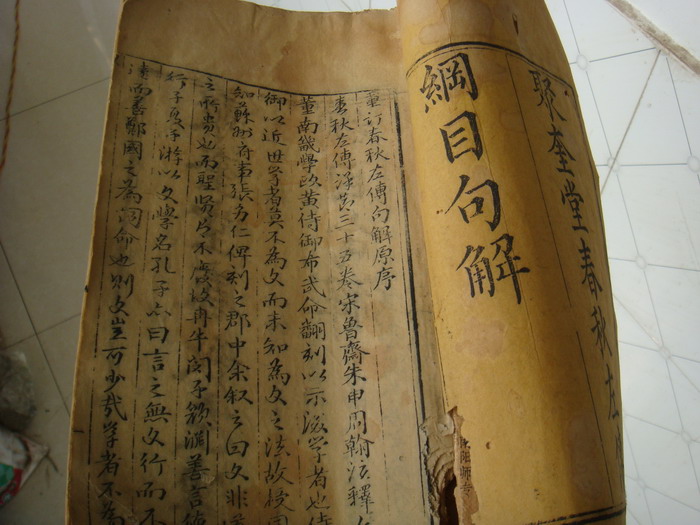 聚奎堂春秋左
綱目句解
重訂春秋左傳句解原序
春秋左傳詳節三十五卷宋魯齋朱申周翰注釋
董南畿學政黃侍御布武命翻刻以示後學者也侍
御以近世學者莫不為文而未知為文之法故授同
知蘇州府事張仁俾刻之郡中余叙之曰文非
之所貴也而聖賢不廢故冉牛閔子顏淵善言德
行子夏子游以文學名孔子亦曰言之無文行而不
遠而善鄭國之為詞命也則文豈可少哉學者不為